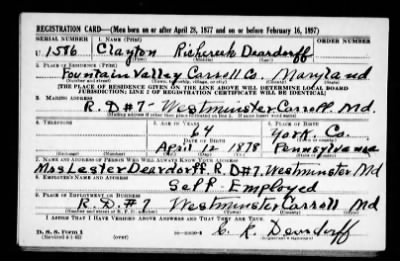 REGISTRATION CARD—(Men born on or after April 28, 1877 and on or before February 16, 1897)
SERIAL NUMBER 1. NAME (Print) ORDER NUMBER
U 1586 Clayton Deardorff
2. PLACE OF RESIDENCE (Print)
Fountain Valley Carroll Co. Maryland
[THE PLACE OF RESIDENCE GIVEN ON THE LINE ABOVE WILL DETERMINE LOCAL BOARD
JURISDICTION; LINE 2 OF REGISTRATION CERTIFICATE WILL BE IDENTICAL]
3. MAILING ADDRESS
R.D#7- Westminster Carroll. Md.
[Mailing address if other than place indicated on line 2. If same insert word same]
4. TELEPHONE 5. AGE IN YEARS 6. PLACE OF BIRTH
64 York. Co.
DATE OF BIRTH
April 12 1878 Pennsylvania
7. NAME AND ADDRESS OF PERSON WHO WILL ALWAYS KNOW YOUR ADDRESS
Mrs Lester Deardorff. R.D#7. Westminster Md
8. EMPLOYER'S NAME AND ADDRESS
Self. Employed
9. PLACE OF EMPLOYMENT OR BUSINESS
R.D.#7 Westminster Carroll Md
(Number and street or R. F. D. number) (Town) (County) (State)
I AFFIRM THAT I HAVE VERIFIED ABOVE ANSWERS AND THAT THEY ARE TRUE.
D. S. S. Form 1 C. R. Deardorff
(Revised 4-1-42) (over)